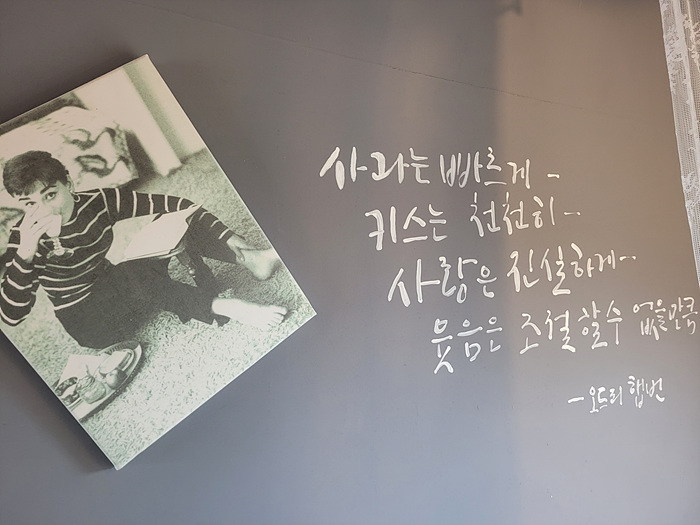 사과는 빠르게~
키스는 천천히~
사랑은 진실하게~
웃음은 조절 할수 없을만큼
- 오드리 햅번